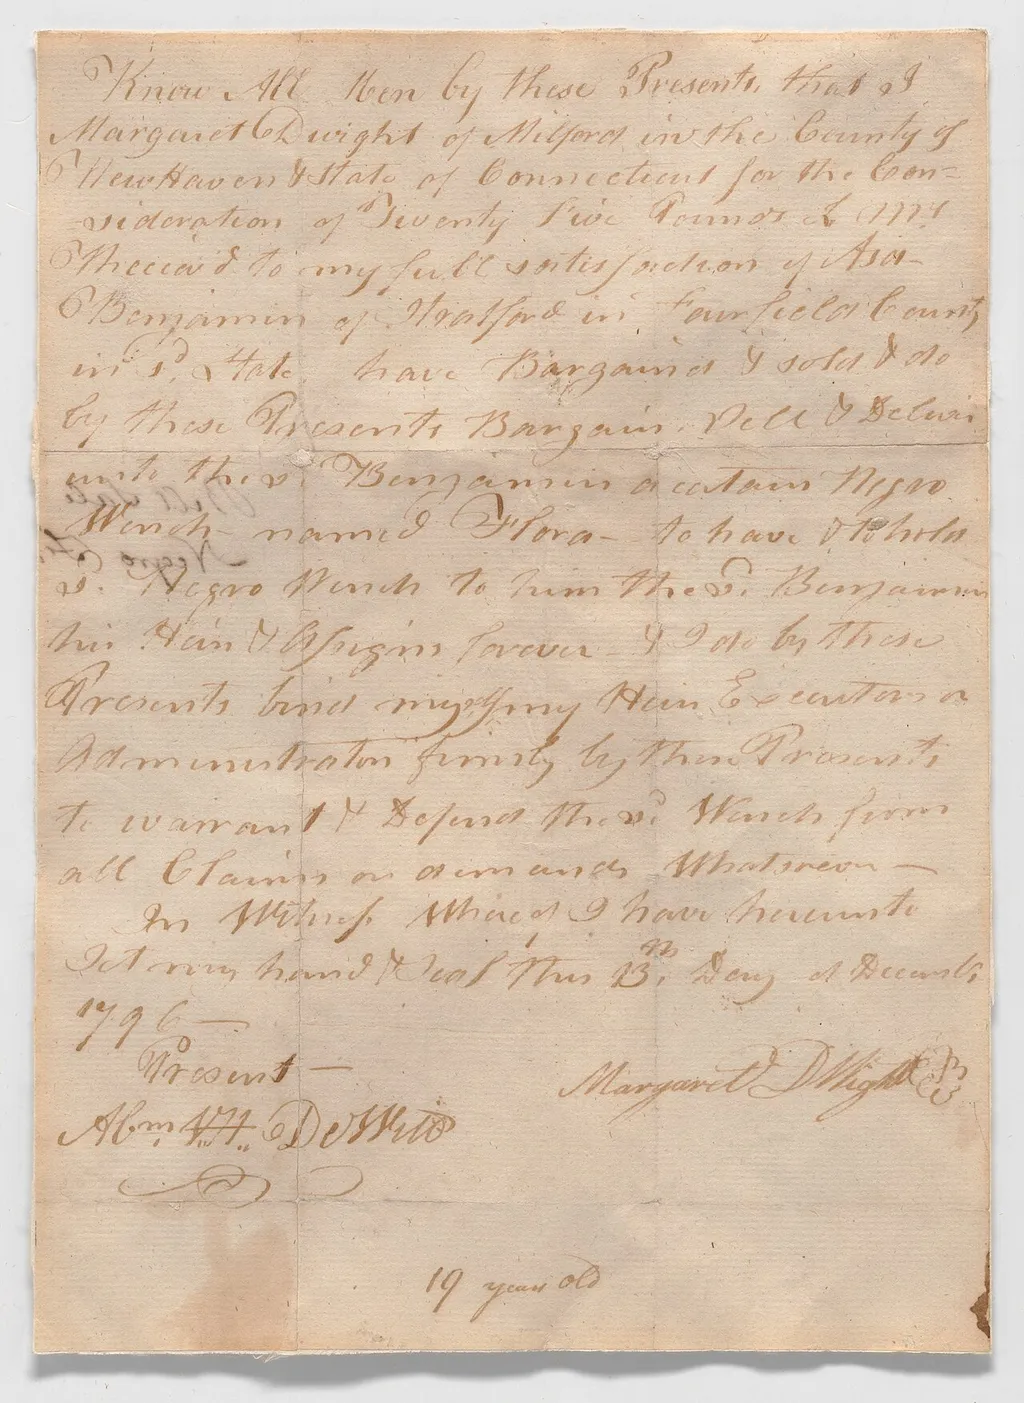 Know All Men by these Presents, that I
Margaret Dwight of Milford in the County of
New Haven & State of Connecticut for the Con=
sideration of Twenty Five Pounds L My
Theceiv'd to my full satisfaction of Asa
Benjamin of Stratford in Fairfield County
in sd. State, have Bargaind & sold & do
by these Presents Bargain, Sell & Deliver
unto the sd. Benjamin a certain Negro
Wench named Flora – to have & to hold
sd. Negro Wench to him the sd. Benjamin
his Heirs & Assigns forever – & I do by these
Presents bind myself my Heirs Executors or
Administrators firmly by these Presents
to warrant & Defend the sd. Wench from
all Claims or demands Whatsoever –
In Witness Whereof I have hereunto
Set my hand & Seal this 13th. Day of Decembr
1796 –
Present –
Margaret DWight
Abm. VH. DeWitt
19 years old
Bill Sale
Negro